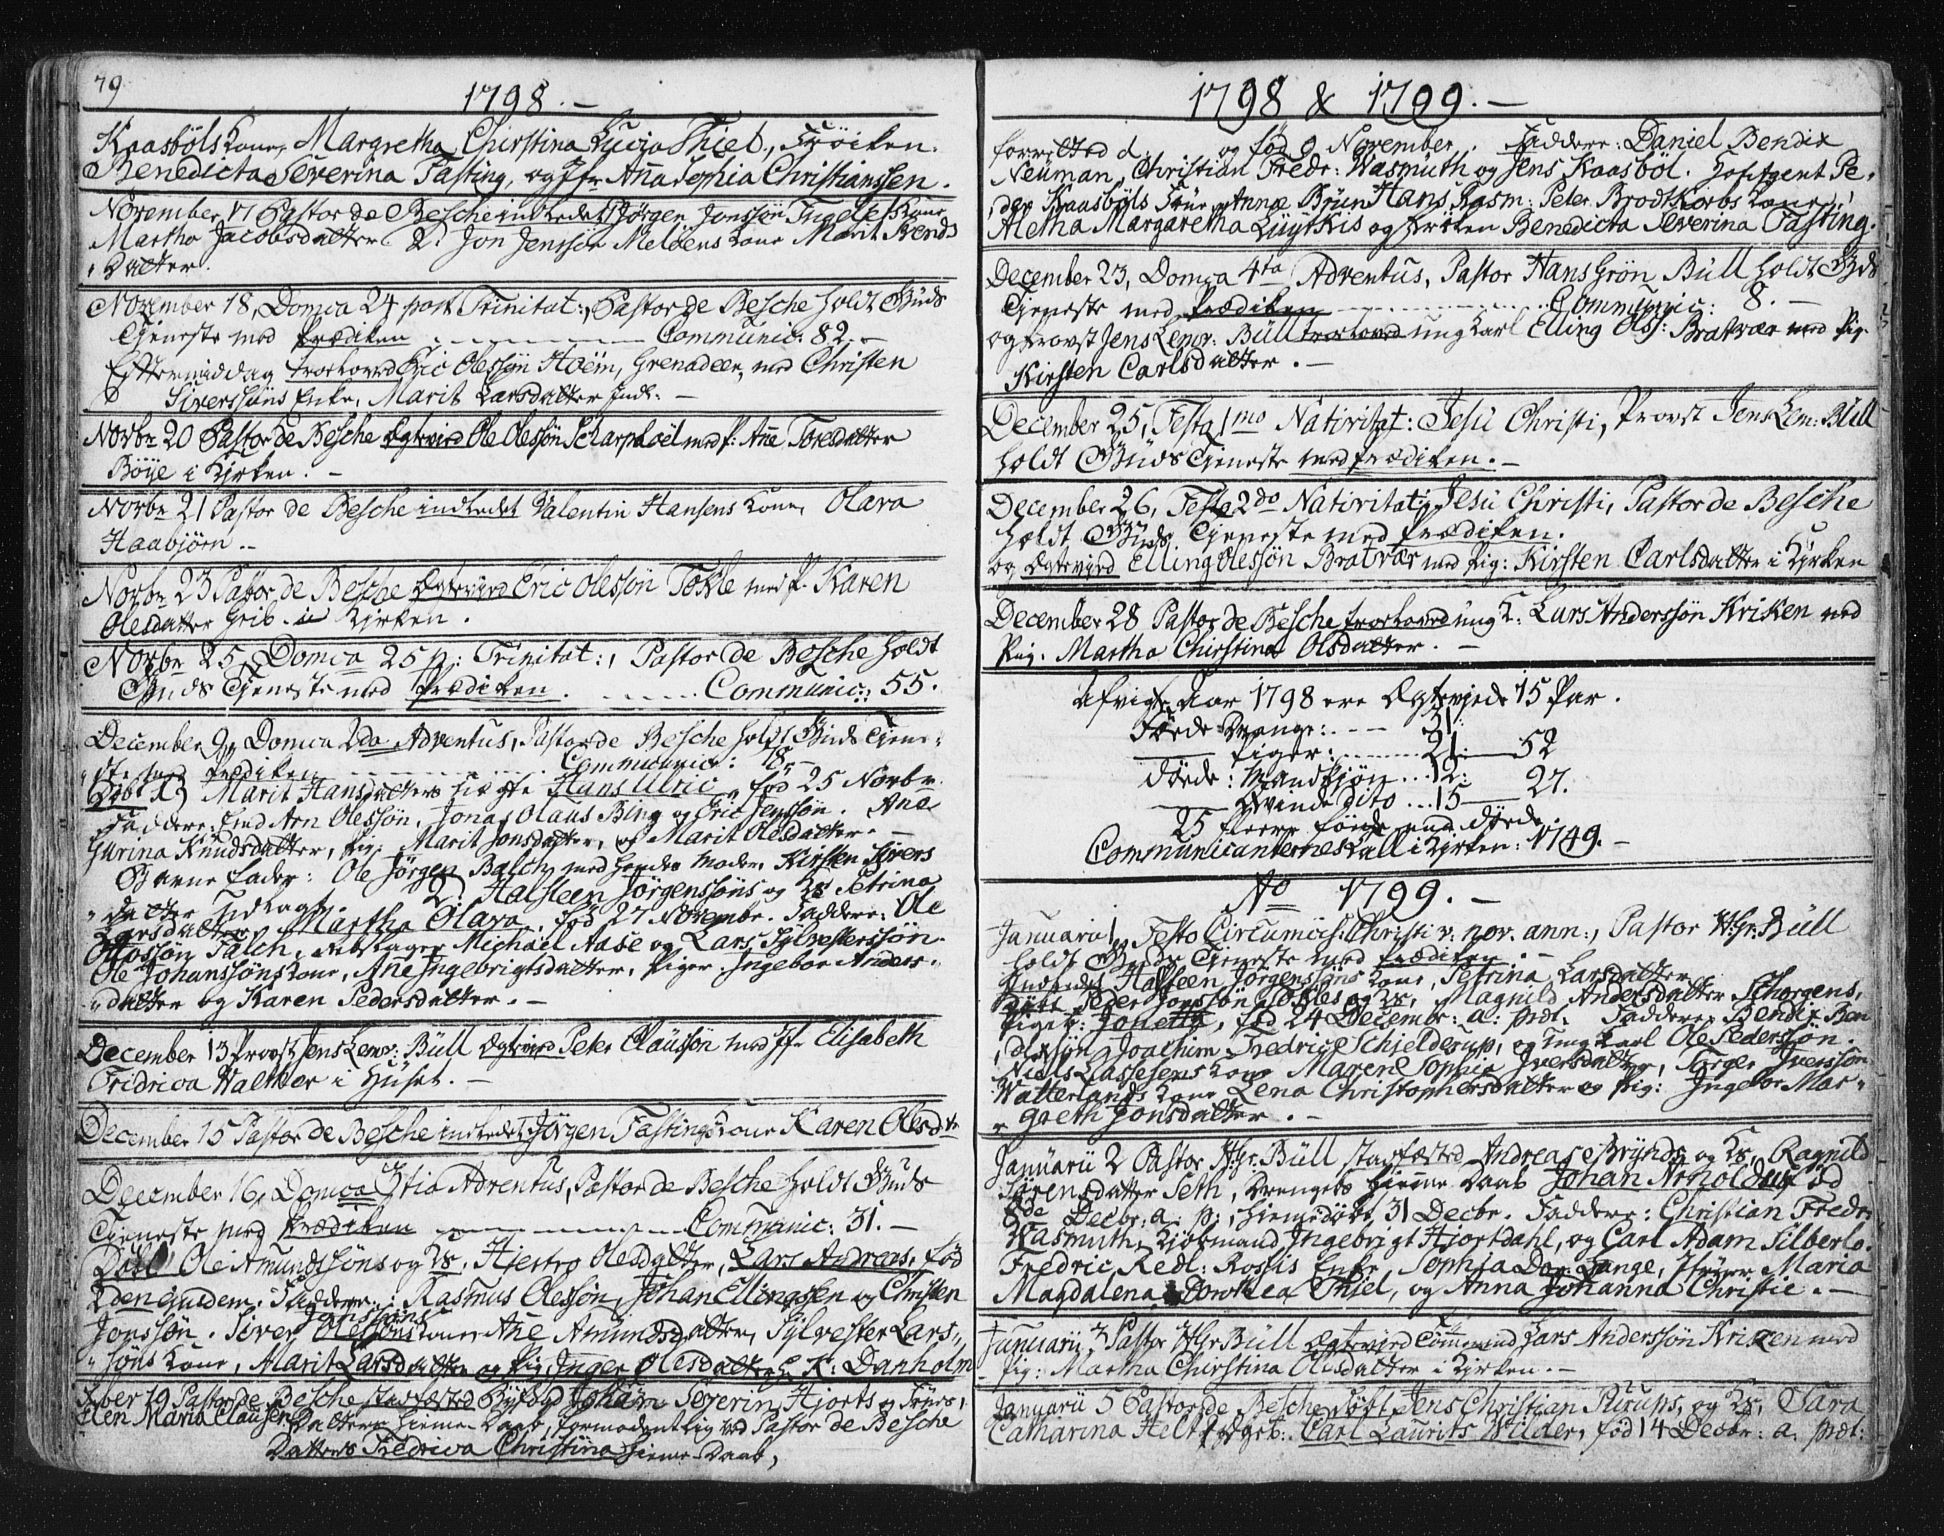 79
1798. –
Kaasböls Kone, Margretha Chirstina Lucia Thiel, Fröiken
Benedicta Severina Fasting, og Jfr Aña Sophia Christianssen.
November 17 Pastor de Besche indledet Jörgen Jonssön Kone
Martha Jacobsdatter. 2. Jon Jenssön Melöens Kone Marit Bends
datter.
November 18, Domca 24 post Trinitat:, Pastor de Besche holdt Guds
Tjeneste med Prædiken Communic: 82. –
Eftermiddag troloved Eric Olessön Hoëm, Grenadeer, med Christen
Siverssöns Enke, Marit Larsdatter Inds: –
Norbr 20 Pastor de Besche Ægtevied Ole Olessön Scharphoël med P: Añe Toresdatter
Böÿe i Kirken. –
Norbr 21 Pastor de Besche indledet Valentin Hansens Kone, Olava
Haabjörn. –
Norbr 23 Pastor de Besche Ægtevied Eric Olessön Tokle med P. Karen
Olesdatter Grib. i Kirken.
Norbr 25, Domca 25 p: Trinitat:, Pastor de Besche holdt
Guds Tjeneste med Prædiken. Communic: 55.
December 9, Domca 2da Adventus, Pastor de Besche holdt Guds Tjene-
ste med Prædiken Communic: 18. –
Döbt 1) Marit Hansdatters uægte Hans Ulric, fød 25 Norbr.
Faddere: Arn Olessön, Jonas Olaus Bing og Eric Jenssön. Ane
Gurina Knudsdatter, Pig: Marit Jonsdatter, og Marit Olesdatter. –
Barne Fader: Ole Jörgen Balch, med hendes Moder, Kirsten Sivers
datter udlagt. 2) Halsteen Jörgenssöns og Ks Petrina
Larsdatter Martha Olava, fød 27 Novembr. Faddere: Ole
Ottossön Falch, Michael Aase og Lars Sylvesterssön.
Ole Johanssöns Kone, Añe Ingebrigtsdatter, Piger: Ingebor Anders-
datter og Karen Pedersdatter. –
December 13 Provst Jens Lem: Bull Ægtevied Peter Claussön med Jfr Elisabeth
Fridrica Walther i Huset. –
December 15 Pastor de Besche indledet Jörgen Fastings Kone Karen Olesdr
December 16, Domca 3tia Adventus, Pastor de Besche holdt Guds
Tjeneste med Prædiken Communic: 31. –
Döbt Ole Amundssöns og Ks, Olesdatter, Lars Andreas, fød
Faddere: Rasmus Olessön, Johan Ellingssen og Christen
Jonssön. Siver Olessöns Kone, Ane Amundsdatter, Sylvester Lars-
söns Kone, Marit Larsdatter og Pig: Inger Olesdatter, K: Danholm
19 Pastor de Besche stadfæsted Byfogd Johan Severin Hjorts og Frues,
Elen Maria Clausen Datters Hieme-Daab, formodentlig ved Pastor de Besche
Datters Fredrica Christina hieme-Daab,
1798 & 1799. –
forretted d. og fød 9 November. Faddere: Daniel Bendix
Neuman, Christian Fredr: Wasmuth og Jens Kaasböl. Hofagent Pe-
der Kaasböls Frue, Anna Brun Hans Rasm: Peter Brodtkorbs Kone,
Aletha Margaretha Luytkis og Fröken Benedicta Severina Fasting.
December 23, Domca 4ta Adventus, Pastor Hans Grön Bull holdt Guds
Tjeneste med Prædiken Communic: 8. –
og Provst Jens Lem: Bull trolovede ung Karl Elling Ols: Bratvær med Pig.
Kirsten Carlsdatter. –
December 25, Festa 1mo Nativitat: Jesu Christi, Provst Jens Lem: Bull
holdt Guds Tjeneste med Prædiken. –
December 26, Festo 2do Nativitat: Jesu Christi, Pastor de Besche
holdt Guds Tjeneste med Prædiken.
og Ægtevied Elling Olessön Bratvær med Pig: Kirsten Carlsdatter i Kirken
December 28 Pastor de Besche trolovede ung K: Lars Anderssön Kriken med
Pig. Martha Chirstina Olsdatter. –
Afvigte Aar 1798 ere Ægteviede 15 Par.
Födde Drenge: 31.
Piger: 21. 52
Döde: Mandkjön 12.
Qvinde dito 15 27.
25 fleere födde end döde.
Communicanternes Tall i Kirken: 1749. –
No 1799. –
Januarii 1, Festo Circumcis: Christi v: nov. ann:, Pastor H: Gr: Bull
holdt Guds Tjeneste med Prædiken. –
Indledet Halsteen Jörgenssöns Kone, Petrina Larsdatter
Döbt Peder Jonssön Tokles og Ks, Magnild Andersdatter Schorgens,
Pigeb: Jonetta, fød 24 Decembr: a: prdt. Faddere: Bendix Ben-
dixsön, Joachim Fredric Schielderup, og Ung Karl Ole Pederssön.
Niels Lassesens Kone Maren Sophia Iversdatter, Torger Iverssön
Watterlands Kone Lena Christophersdatter og Pig: Ingebor Mar-
greth Jonsdatter. –
Januarii 2 Pastor H: Gr: Bull stadfæsted Andreas Brÿnds og Ks, Ragnild
Sörensdatter Seth, Drengebs hieme Daab Johan Arnoldus fød
Decbr: a: p:, hiemedöbt 31 Decbr. Faddere: Christian Fredr:
Wasmuth, Kjöbmand Ingebrigt Hjortdahl, og Carl Adam Silberlo.
Fredric Redl: Rossis Enke, Sophia Dor: Lange, Jfruer Maria
Magdalena Dorothea Thiel, og Anna Johanna Christie. –
Januarii 3 Pastor H: Gr Bull Ægtevied Lars Anderssön Kriken med
Pig: Martha Chirstina Olesdatter i Kirken. –
Januarii 5 Pastor de Besche döbt Jens Christian Pürups, og Ks, Sara
Catharina Helt Carl Laurits Wilder, fød 14 Decbr: a. prdt: